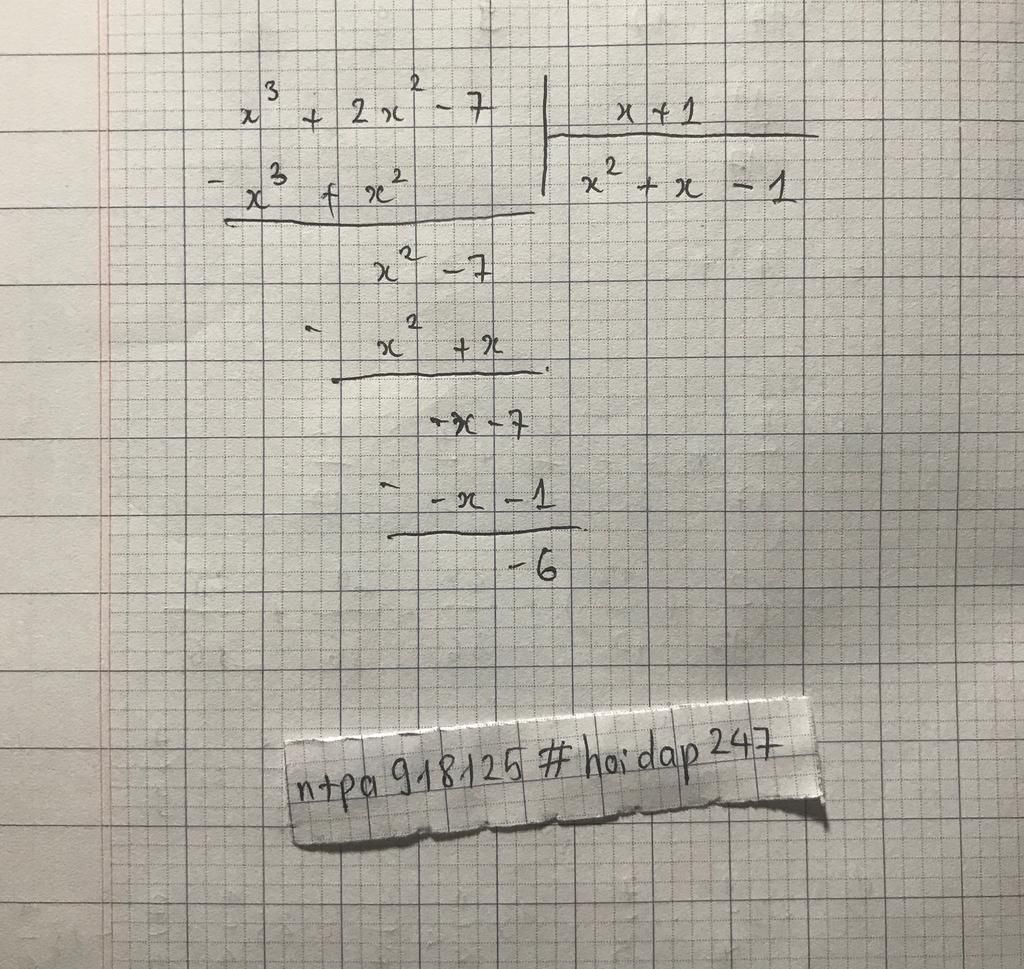 x³ + 2x² - 7 | x + 1
- x³ + x² | x² + x - 1
x² - 7
- x² + x
-x - 7
- -x - 1
-6
n+pa 918125 # hoidap 247